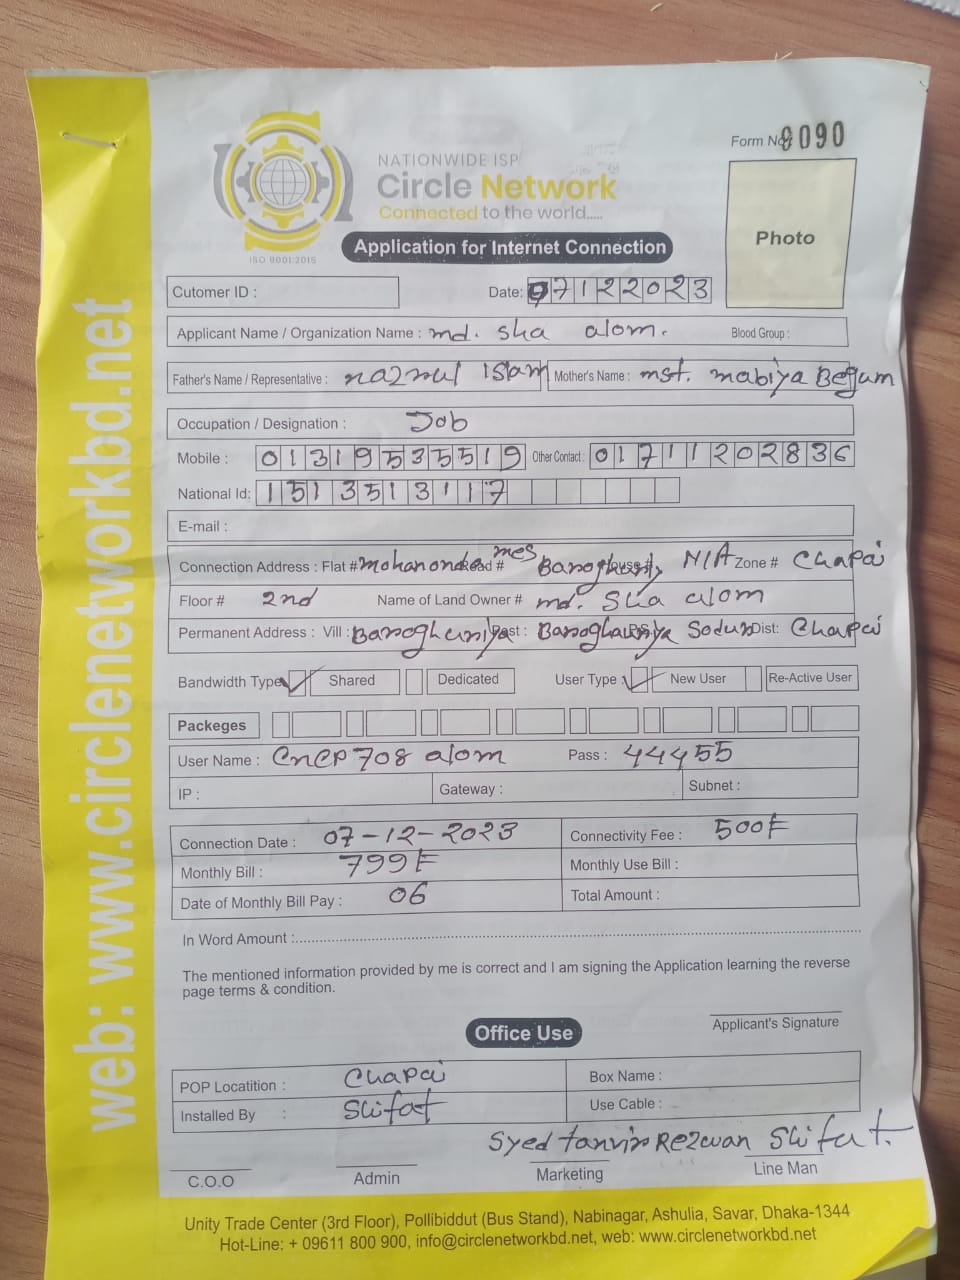 Form No. 9090
NATIONWIDE ISP
Circle Network
Connected to the world.....
ISO 9001:2015
Application for Internet Connection
Photo
Cutomer ID :
Date: 07122023
Applicant Name / Organization Name : md. sha alom.
Blood Group :
Father's Name / Representative : nazmul Islam
Mother's Name : mst. mabiya Begum
Occupation / Designation : Job
Mobile : 01319535519
Other Contact : 01711202836
National Id: 1513513117
E-mail :
Connection Address : Flat # mohanonda mes Road # House # N/A Zone # Chapai
Floor # 2nd Name of Land Owner # md. Sha alom
Permanent Address : Vill : Baroghuriya Post : Baroghuriya P.S Sodur Dist: Chapai
Bandwidth Type Shared Dedicated User Type : New User Re-Active User
Packeges
User Name : CnCP708 alom Pass : 44455
IP : Gateway : Subnet :
Connection Date : 07-12-2023 Connectivity Fee : 500৳
Monthly Bill : 799৳ Monthly Use Bill :
Date of Monthly Bill Pay : 06 Total Amount :
In Word Amount :
The mentioned information provided by me is correct and I am signing the Application learning the reverse
page terms & condition.
Applicant's Signature
Office Use
POP Locatition : Chapai Box Name :
Installed By : Shifat Use Cable :
Syed tanvir Rezwan Shifat.
C.O.O Admin Marketing Line Man
Unity Trade Center (3rd Floor), Pollibiddut (Bus Stand), Nabinagar, Ashulia, Savar, Dhaka-1344
Hot-Line: + 09611 800 900, info@circlenetworkbd.net, web: www.circlenetworkbd.net
web: www.circlenetworkbd.net